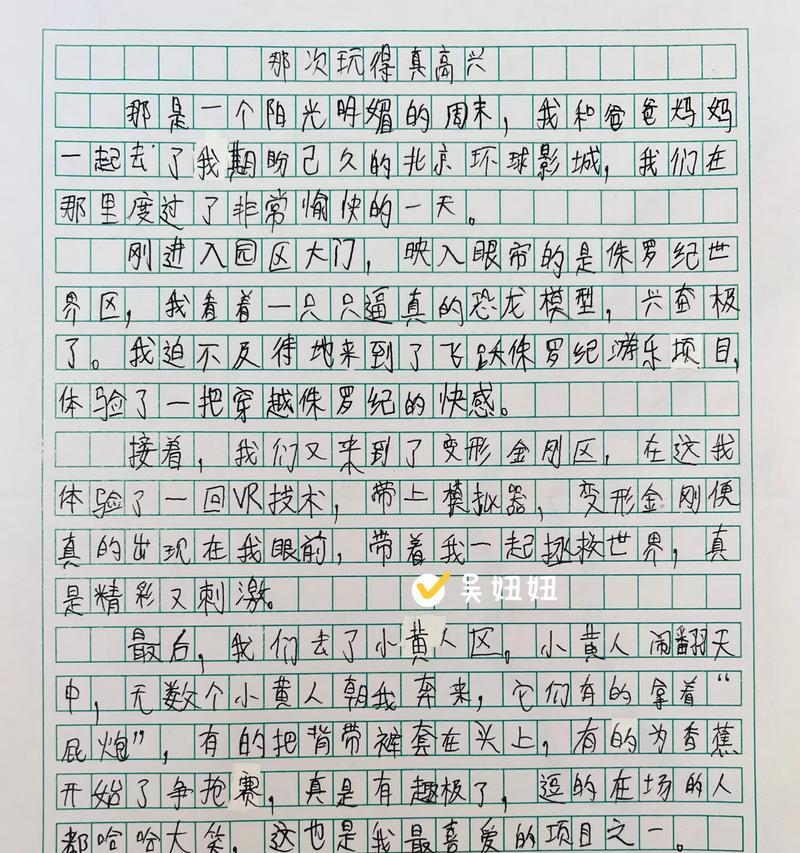 那次玩得真高兴
那是一个阳光明媚的周末，我和爸爸妈妈
一起去了我期盼己久的北京环球影城，我们在
那里度过了非常愉快的一天。
刚进入园区大门，映入眼帘的是侏罗纪世
界区，我看着一只只逼真的恐龙模型，兴奋极
了。我迫不及待地来到了飞跃侏罗纪游乐项目，
体验了一把穿越侏罗纪的快感。
接着，我们又来到了变形金刚区，在这我
体验了一回VR技术，带上模拟器，变形金刚便
真的出现在我眼前，带着我一起拯救世界，真
是精彩又刺激。
吴妞妞
最后，我们去了小黄人区。小黄人闹翻天
中，无数个小黄人朝我奔来，它们有的拿着“
屁炮”，有的把背带裤套在头上，有的为香蕉
开始了争抢赛，真是有趣极了，逗的在场的人
都哈哈大笑，这也是我最喜爱的项目之一。